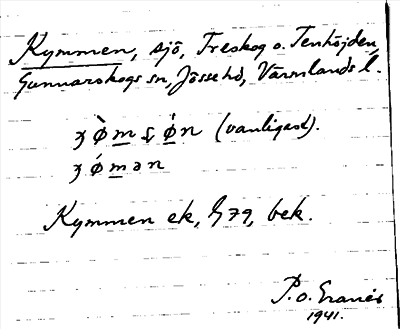 Kymmen, sjö, Treskog o. Tenhöjden,
Gunnarskogs sn, Jösse hd, Värmlands l.
(vanligast).
Kymmen ek, G 79, bek.
P. o.
1941.